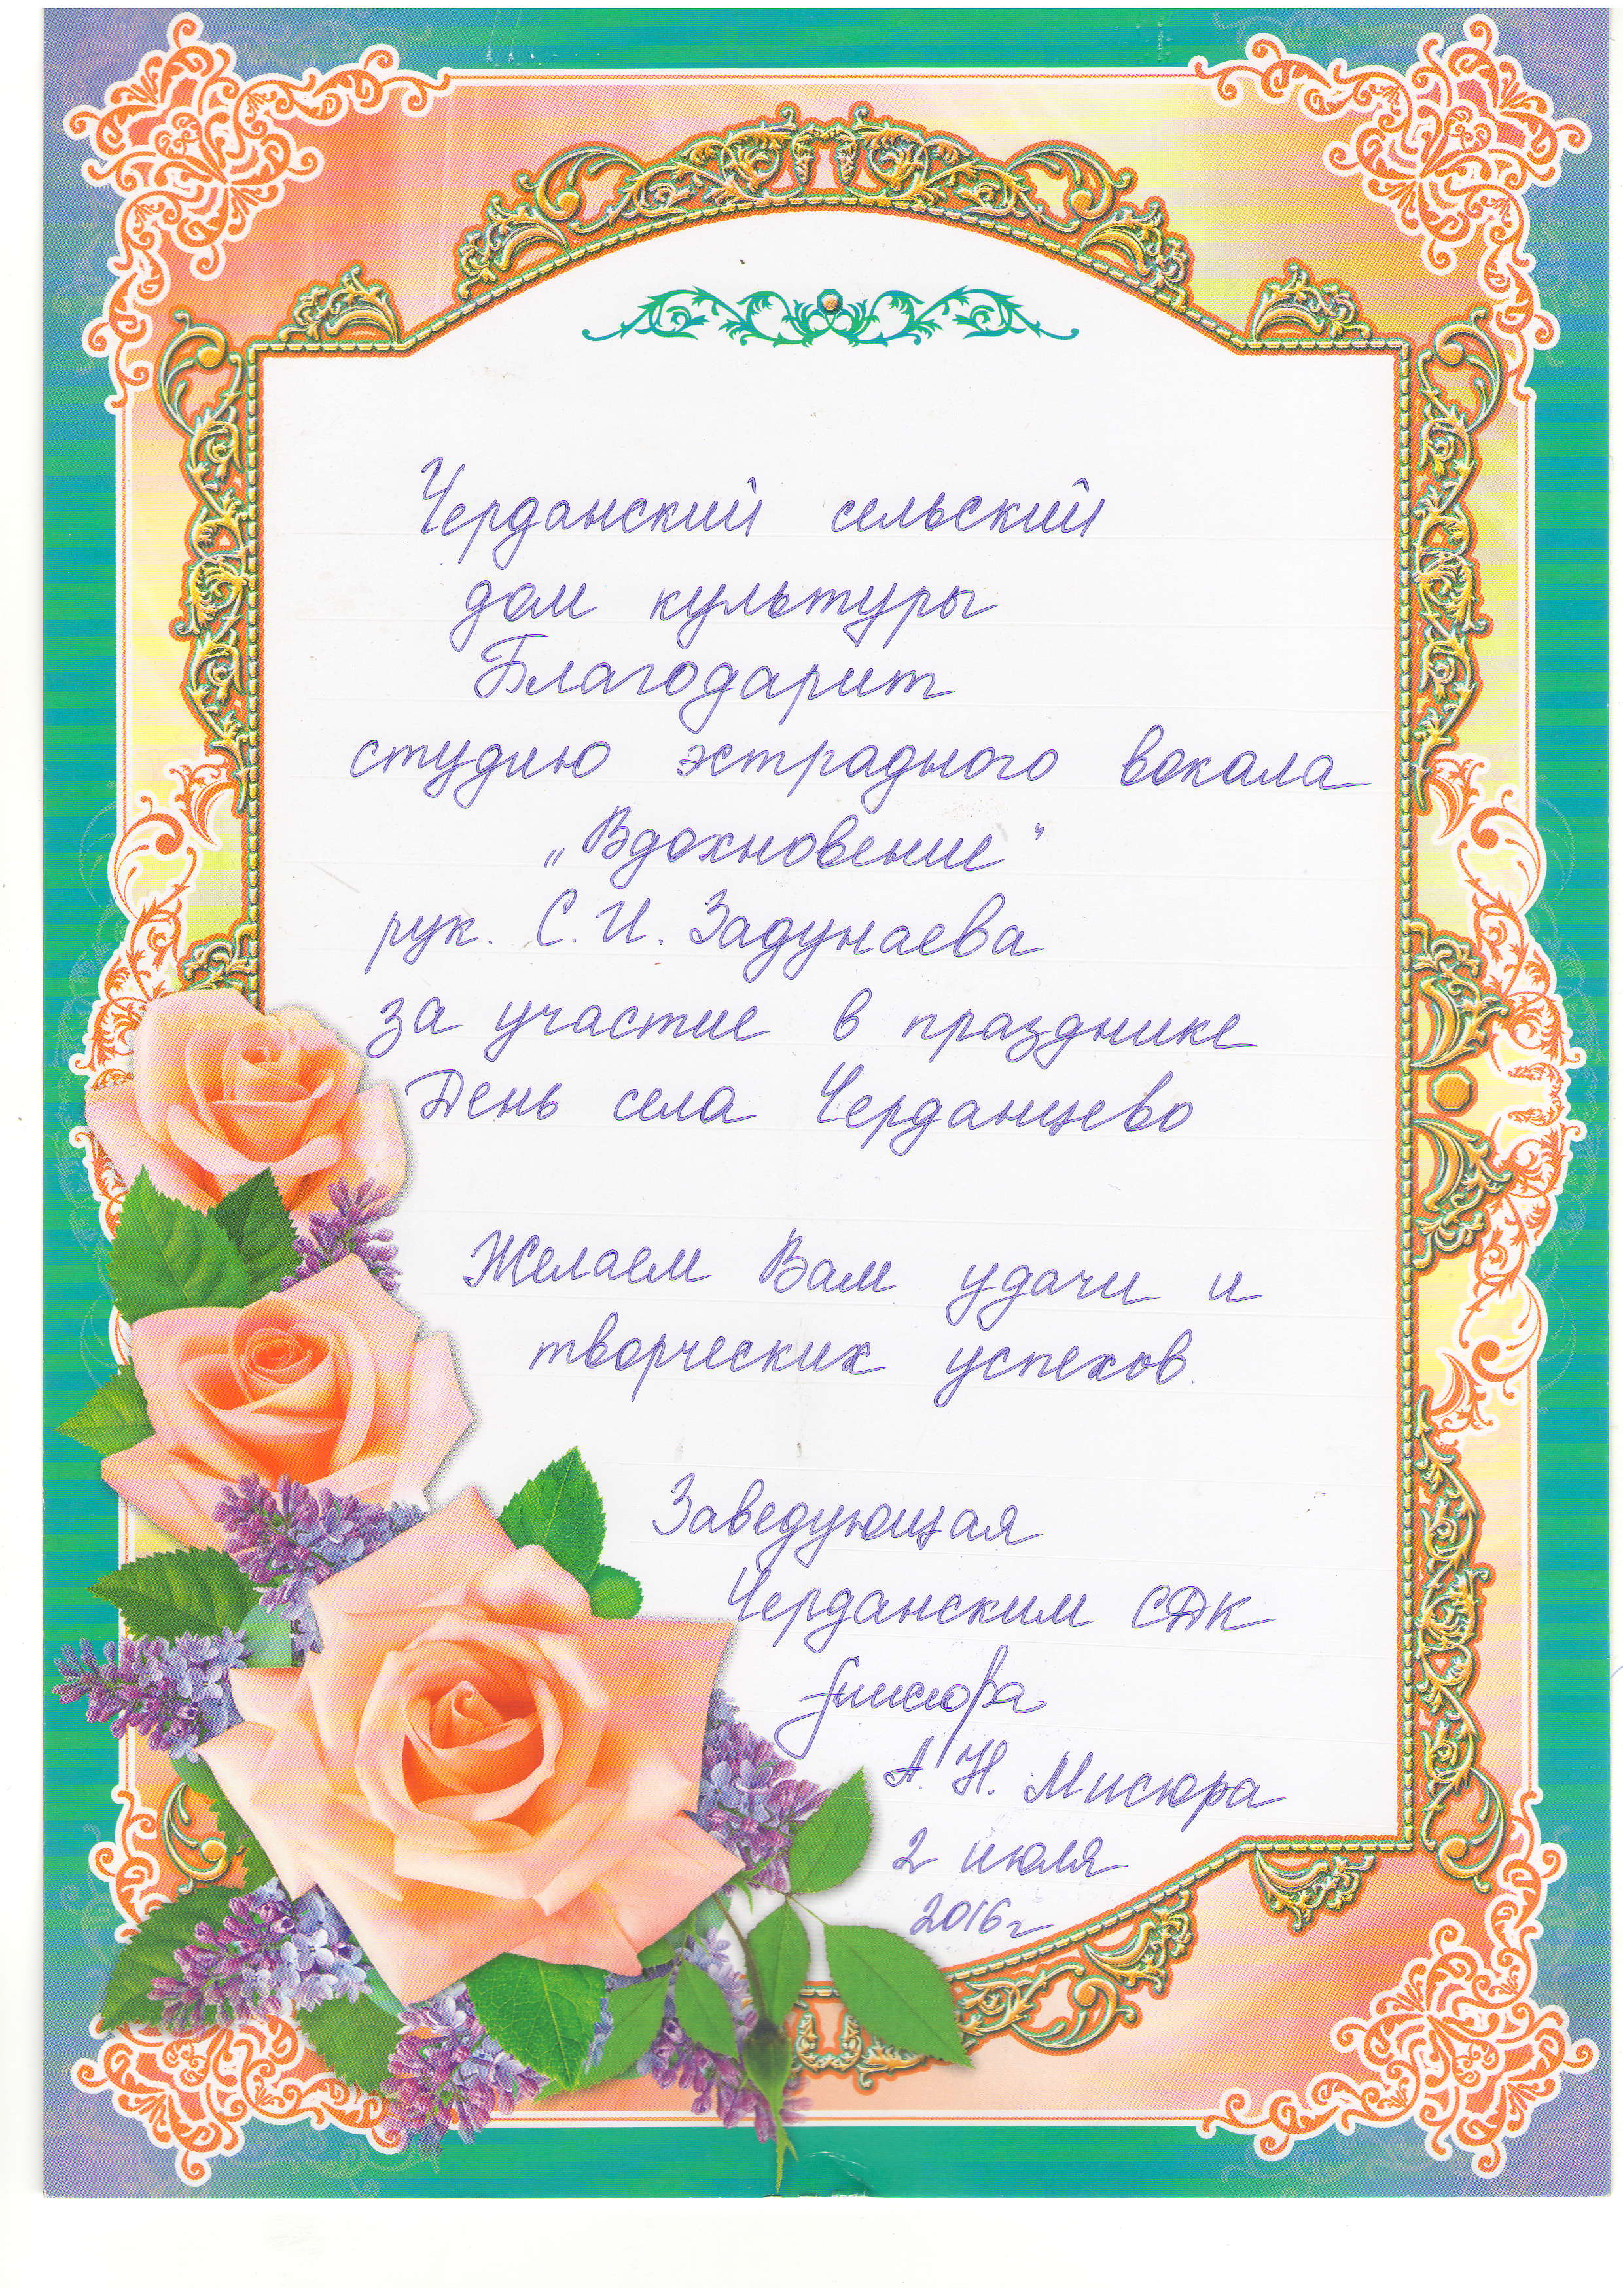 Черданский сельский
дом культуры
Благодарит
студию эстрадного вокала
„Вдохновение"
рук. С.И. Задунаева
за участие в празднике
День села Черданцево
Желаем Вам удачи и
творческих успехов.
Заведующая
Черданским СДК
А.Н. Мисюра
2 июля
2016г